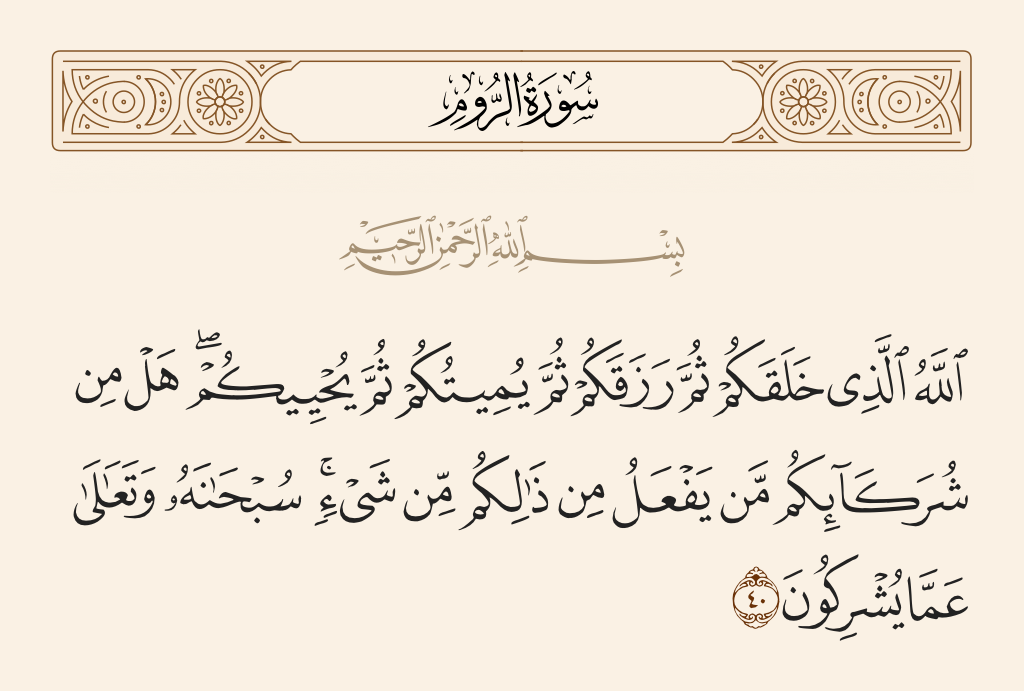 سُورَةُ الرُّومِ
بِسْمِ ٱللَّهِ ٱلرَّحْمَٰنِ ٱلرَّحِيمِ
ٱللَّهُ ٱلَّذِى خَلَقَكُمْ ثُمَّ رَزَقَكُمْ ثُمَّ يُمِيتُكُمْ ثُمَّ يُحْيِيكُمْ ۖ هَلْ مِن
شُرَكَآئِكُم مَّن يَفْعَلُ مِن ذَٰلِكُم مِّن شَىْءٍ ۚ سُبْحَـٰنَهُۥ وَتَعَـٰلَىٰ
عَمَّا يُشْرِكُونَ ٤٠